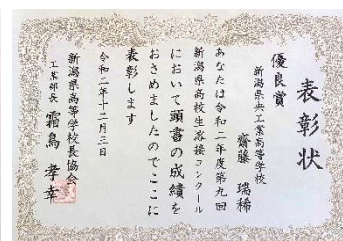 表彰状
優良賞
新潟県央工業高等学校
齋藤 瑞稀
あなたは令和二年度第九回
新潟県高校生溶接コンクール
において頭書の成績を
おさめましたのでここに
表彰します
令和二年十二月三日
新潟県高等学校長協会
工業部長 霜鳥 孝幸